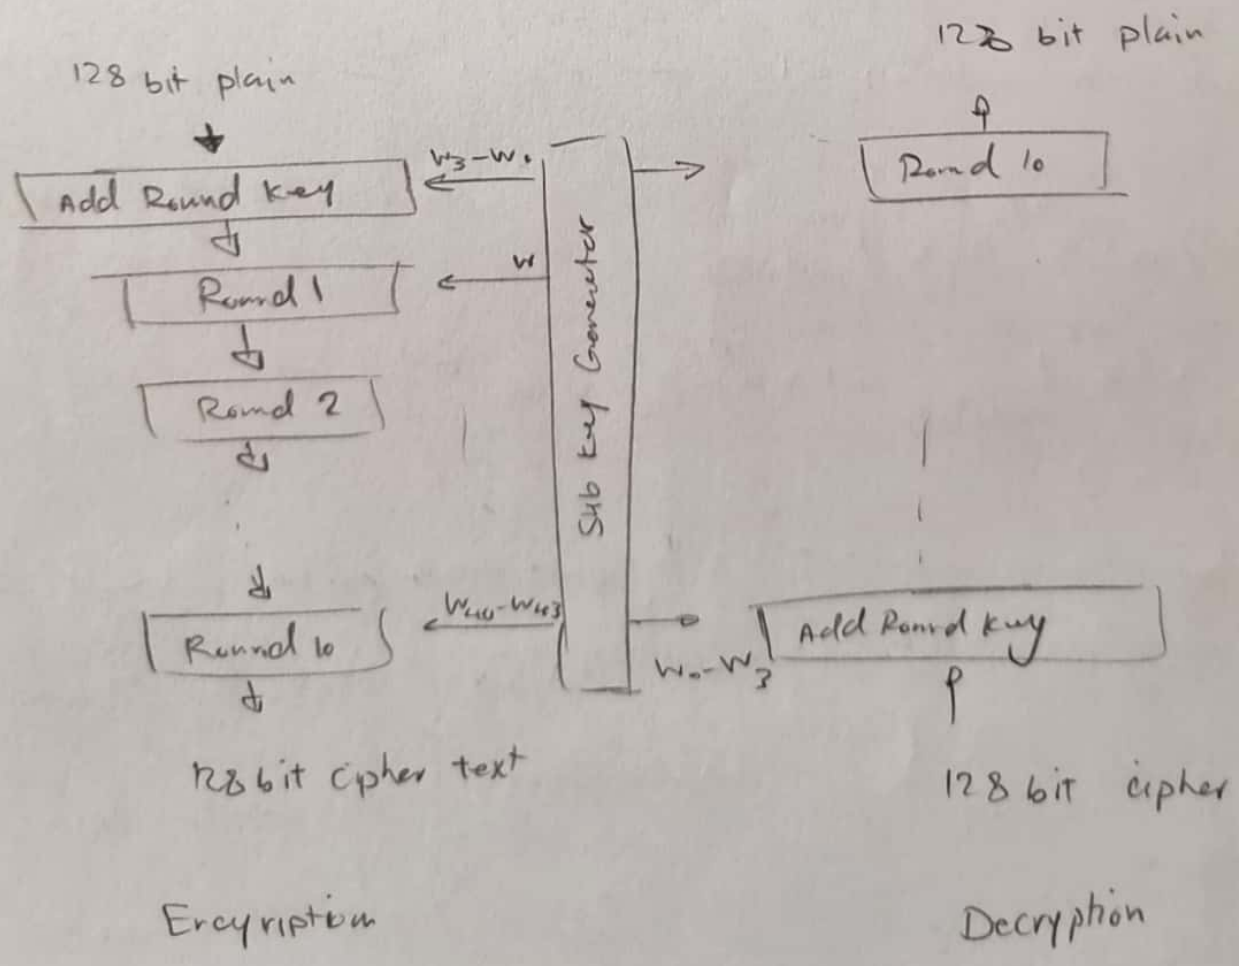 128 bit plain
Add Round Key
W3-W0
Round 1
W
Round 2
Round 10
W40-W43
128 bit cipher text
Sub Key Generator
bit plain
Round 10
Add Round Key
W0-W3
128 bit cipher
Decryption